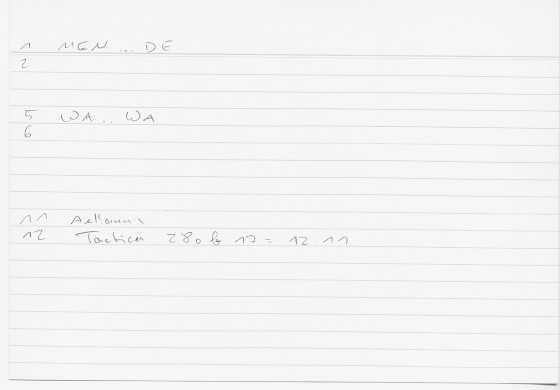 1 MEN ... DE
2
5 WA .. WA
6
11
12 Tactica 280 17 = 12 11